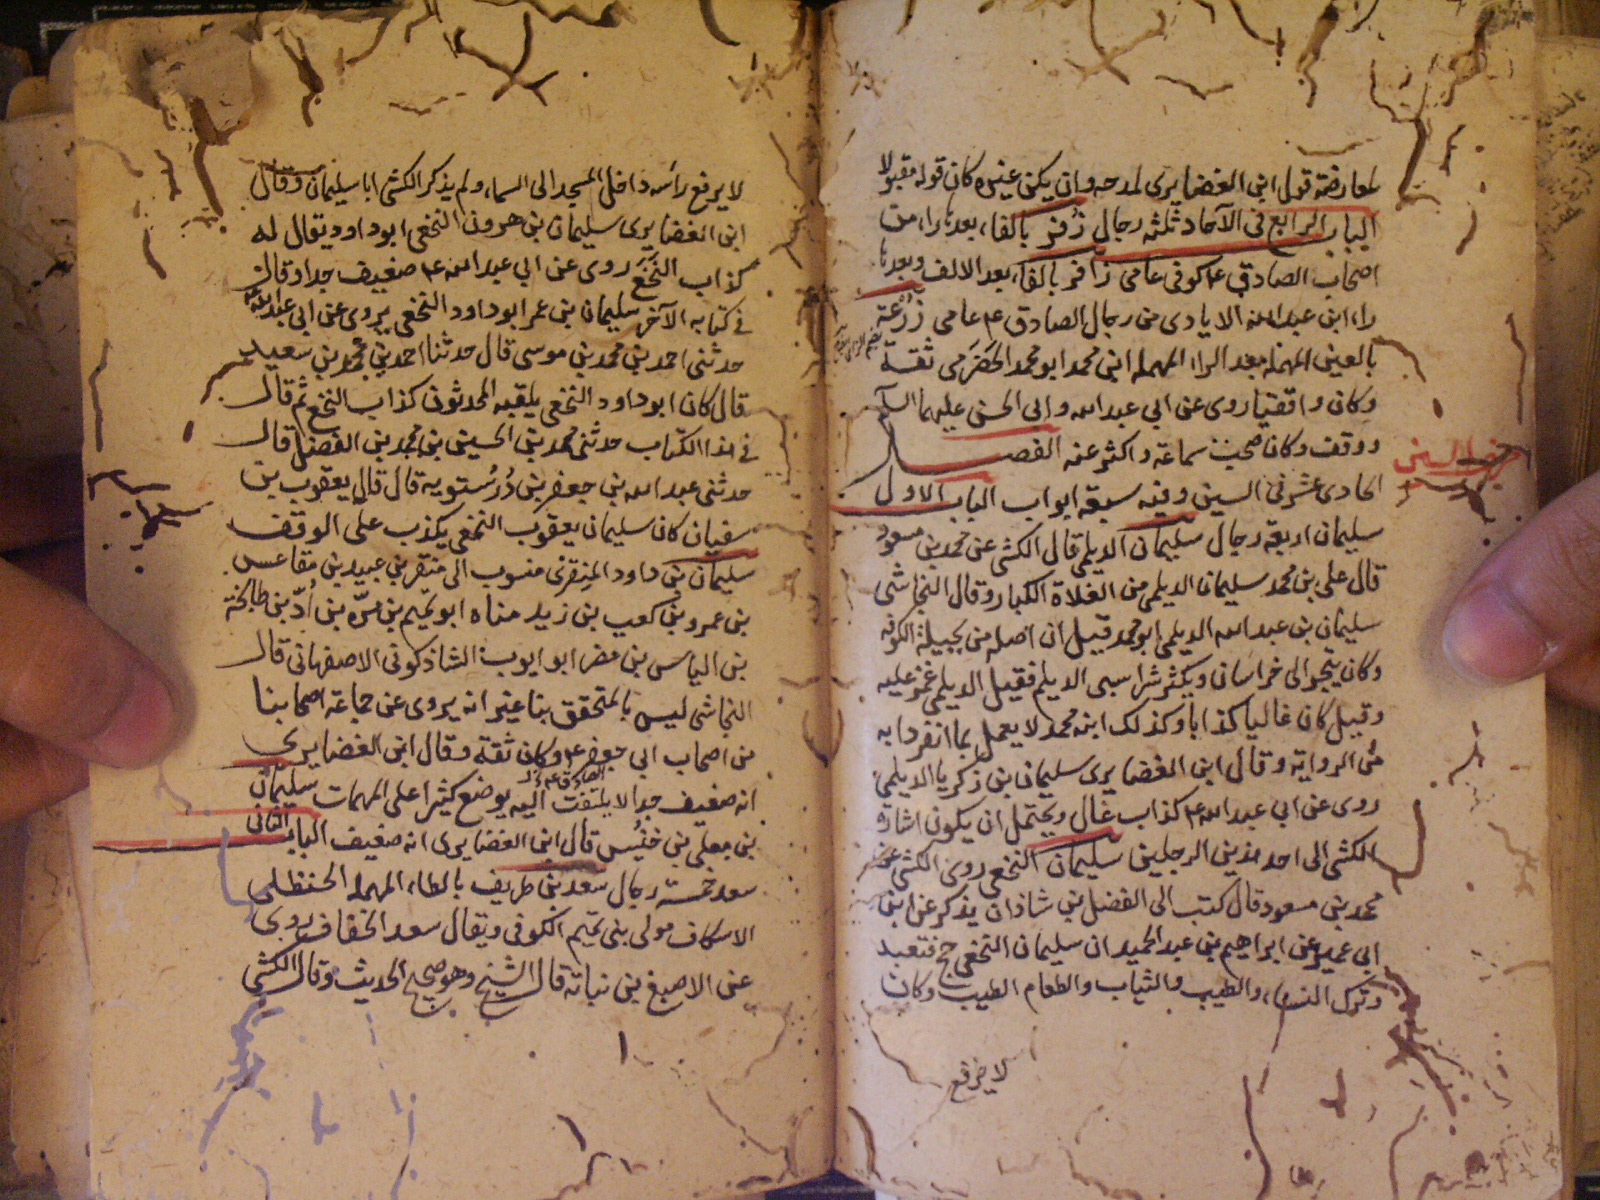 لمعارضة قول ابن الغضايرى لمدحه وان يكن عينه كان قوله مقبولا
الباب الرابع فى الآحاد ثلثة رجال زُفر بالفاء بعدها راء من
اصحاب الصادق ع كوفى عامى زافر بالفاء بعد الالف وبعدها
راء ابن عبد الله الايادى من رجال الصادق ع عامى زُرعة
بالعين المهملة بعد الراء المهملة ابن محمد ابو محمد الحضرمى ثقة
وكان واقفيا روى عن ابي عبد الله وابي الحسن عليهما السلم
ووقف وكان صحب سماعة واكثر عنه الفصل
الحادى عشر فى السين وفيه سبعة ابواب الباب الاول
سليمان اربعة رجال سليمان الديلمى قال الكشى عن محمد بن مسعود
قال على بن محمد سليمان الديلمى من الغلاة الكبار وقال النجاشى
سليمان بن عبد الله الديلمى ابو محمد قيل ان اصله من بجيلة الكوفة
وكان يتجر الى خراسان ويكثر شرا سبى الديلم فقيل الديلمى غمز عليه
وقيل كان غاليا كذابا وكذلك ابنه محمد لا يعمل بما انفردا به
من الرواية وقال ابن الغضايرى سليمان بن زكريا الديلمى
روى عن ابي عبد الله ع كذاب غال ويحتمل ان يكون اشارة
الكشى الى احد هذين الرجلين سليمان النخعى روى الكشى عن
محمد بن مسعود قال كتب الى الفضل بن شاذان يذكر عن ابن
ابي عمير عن ابراهيم بن عبد الحميد ان سليمان النخعى حج فتعبد
وترك النساء والطيب والثياب والطعام الطيب وكان
لا يرفع
حرف السين
لا يرفع راسه داخل المسجد الى السماء ولم يذكر الكشى ابا سليمان وقال
ابن الغضايرى سليمان بن هرون النخعى ابو داود يقال له
كذاب النخع روى عن ابي عبد الله ع ضعيف جدا وقال
فى كتابه الآخر سليمان بن عمر ابو داود النخعى يروى عن ابي عبد الله ع
حدثنى احمد بن محمد بن موسى قال حدثنا احمد بن محمد بن سعيد
قال كان ابو داود النخعى يلقبه المحدثون كذاب النخع ثم قال
فى هذا الكتاب حدثنى محمد بن الحسين بن محمد بن الفضل قال
حدثنى عبد الله بن جعفر بن دُرُستويه قال قال يعقوب بن
سفيان كان سليمان يعقوب النخعى يكذب على الوقف
سليمان بن داود المنقرى منسوب الى منقر بن عبيد بن مقاعس
بن عمرو بن كعب بن زيد مناه ابو تميم بن مرّة بن أدّ بن طابخة
بن الياس بن مضر ابو ايوب الشاذكونى الاصفهانى قال
النجاشى ليس بالمتحقق بنا غير انه يروى عن جماعة اصحابنا
من اصحاب ابي جعفر ع وكان ثقة وقال ابن الغضايرى
انه ضعيف جدا لا يلتفت اليه يوضع كثيرا على المهمات سليمان
بن معلى بن خنيس قال ابن الغضايرى انه ضعيف الباب الثانى
سعد خمسة رجال سعد بن طريف بالطاء المهملة الحنظلى
الاسكاف مولى بنى تميم الكوفى ويقال سعد الخفاف روى
عن الاصبغ بن نباتة قال الشيخ وهو صحيح الحديث وقال الكشى